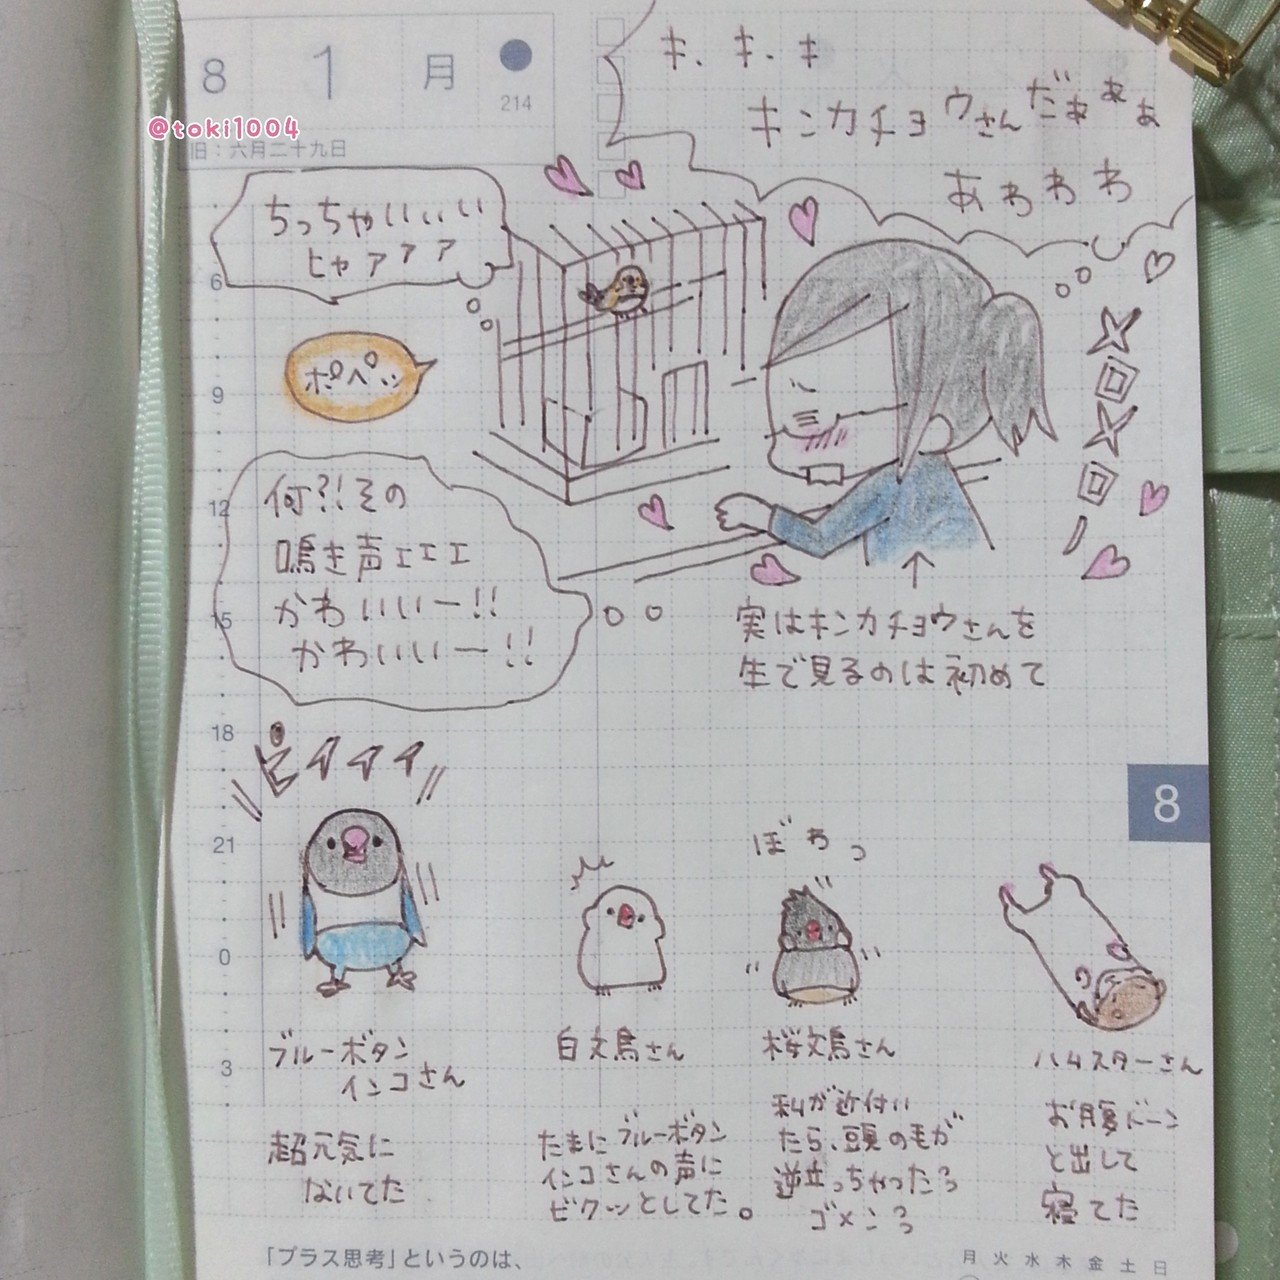 8 1 月
214
@toki1004
旧：六月二十九日
キ、キ、キ
キンカチョウさんだぁぁぁ
あわわわ
ちっちゃいぃぃい
ヒャァァァ
ポペッ
何?!その
鳴き声ェェェ
かわいいー!!
かわいいー!!
実はキンカチョウさんを
生で見るのは初めて
6
9
12
15
18
21
0
3
8
ピイイイイ
ブルーボタン
インコさん
超元気に
ないてた
白文鳥さん
たまにブルーボタン
インコさんの声に
ビクッとしてた。
ぼわっ
桜文鳥さん
私が近付い
たら、頭の毛が
逆立っちゃったろ
ゴメンろ
ハムスターさん
お腹ドーン
と出して
寝てた
「プラス思考」というのは、
月 火 水 木 金 土 日